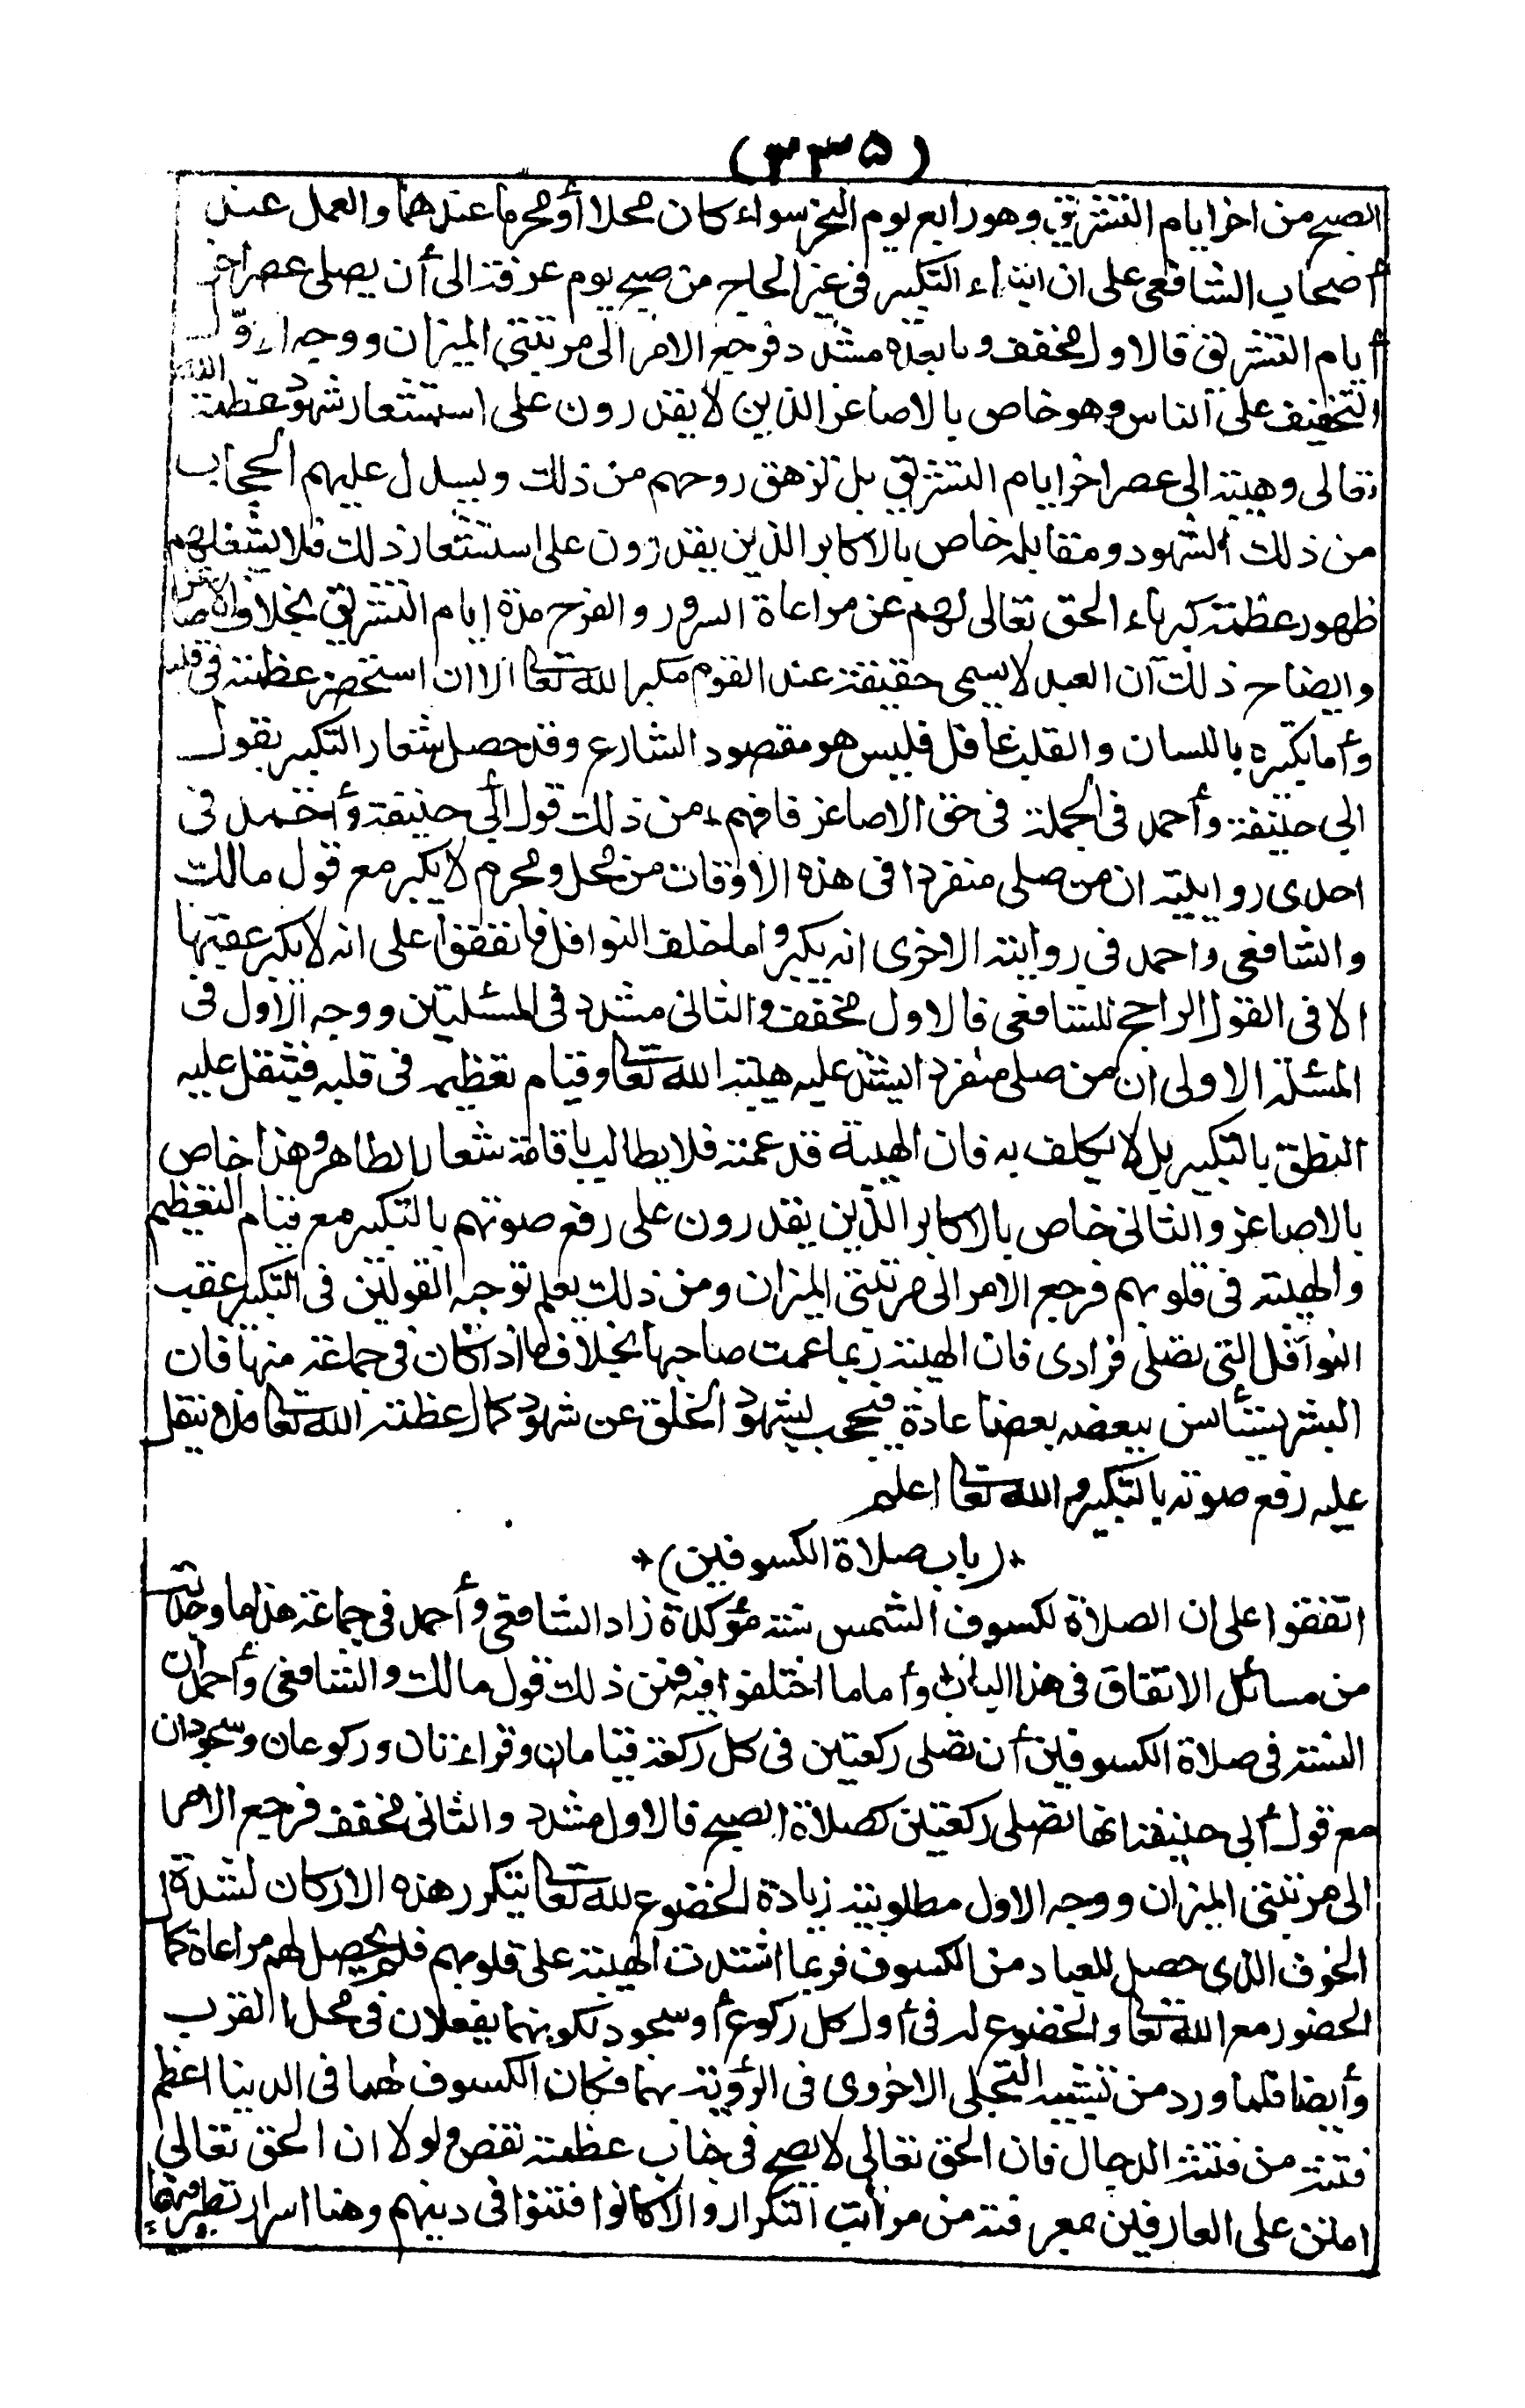 (٣٣٥)
الصبح من اخر ايام التشريق وهو رابع يوم النحر سواء كان محلا أو محرما عندهما والعمل عند
أصحاب الشافعى على ان ابتداء التكبير فى غير الحاج من صبح يوم عرفة الى أن يصلى عصر اخر
أيام التشريق فالاول مخفف وما بعده مشدد فرجع الامر الى مرتبتى الميزان ووجه الاول
التخفيف على الناس وهو خاص بالاصاغر الذين لا يقدرون على استشعار شهود عظمة الله
تعالى وهيبته الى عصر اخر ايام التشريق بل تزهق روحهم من ذلك ويسدل عليهم الحجاب
من ذلك الشهود ومقابله خاص بالاكابر الذين يقدرون على استشعار ذلك فلا يشغلهم
ظهور عظمة كبرياء الحق تعالى لهم عن مراعاة السرور والفرح مدة ايام التشريق بخلاف الاصاغر
وايضاح ذلك أن العبد لا يسمى حقيقة عند القوم مكبرا لله تعالى الا ان استحضر عظمته فى قلبه
وأما تكبيره باللسان والقلب غافل فليس هو مقصود الشارع وقد حصل شعار التكبير بقول
ابى حنيفة وأحمد فى الجملة فى حق الاصاغر فافهم ومن ذلك قول أبى حنيفة وأحمد فى
احدى روايتيه ان من صلى منفردا فى هذه الاوقات من محل ومحرم لا يكبر مع قول مالك
والشافعى واحمد فى روايته الاخرى انه يكبر واما خلف النوافل فاتفقوا على انه لا يكبر عقبها
الا فى القول الراجح للشافعى فالاول مخفف والثانى مشدد فى المسئلتين ووجه الاول فى
المسئلة الاولى ان من صلى منفردا يشتد عليه هيبة الله تعالى وقيام تعظيمه فى قلبه فيثقل عليه
النطق بالتكبير بل لا يكلف به فان الهيبة قد عمته فلا يطالب باقامة شعار الظاهر وهذا خاص
بالاصاغر والثانى خاص بالاكابر الذين يقدرون على رفع صوتهم بالتكبير مع قيام التعظيم
والهيبة فى قلوبهم فرجع الامر الى مرتبتى الميزان ومن ذلك يعلم توجيه القولين فى التكبير عقب
النوافل التى تصلى فرادى فان الهيبة ربما عمت صاحبها بخلاف ما اذا كان فى جماعة منها فان
البشر يستأنس ببعضه بعضا عادة فيحجب بشهود الخلق عن شهود كمال عظمة الله تعالى فلا يثقل
عليه رفع صوته بالتكبير والله تعالى اعلم
*(باب صلاة الكسوفين)*
اتفقوا على ان الصلاة لكسوف الشمس سنة مؤكدة زاد الشافعى وأحمد فى جماعة هذا ما وجدته
من مسائل الاتفاق فى هذا الباب وأما ما اختلفوا فيه فمن ذلك قول مالك والشافعى وأحمد ان
السنة فى صلاة الكسوفين أن تصلى ركعتين فى كل ركعة قيامان وقراءتان وركوعان وسجودان
مع قول أبى حنيفة انها تصلى ركعتين كصلاة الصبح فالاول مشدد والثانى مخفف فرجع الامر
الى مرتبتى الميزان ووجه الاول مطلوبية زيادة الخضوع لله تعالى بتكرر هذه الاركان لشدة
الخوف الذى حصل للعباد من الكسوف فربما اشتدت الهيبة على قلوبهم فلم يحصل لهم مراعاة كمال
الحضور مع الله تعالى والخضوع له فى أول كل ركوع أو سجود لكونهما يفعلان فى محل القرب
وأيضا فلما ورد من تشبيه التجلى الاخروى فى الرؤية بهما فكان الكسوف لهما فى الدنيا اعظم
فتنة من فتنة الدجال فان الحق تعالى لا يصح فى جناب عظمته نقص ولولا ان الحق تعالى
امتن على العارفين بمعرفته من مراتب التكرار والا كانوا فتنوا فى دينهم وهنا اسرار